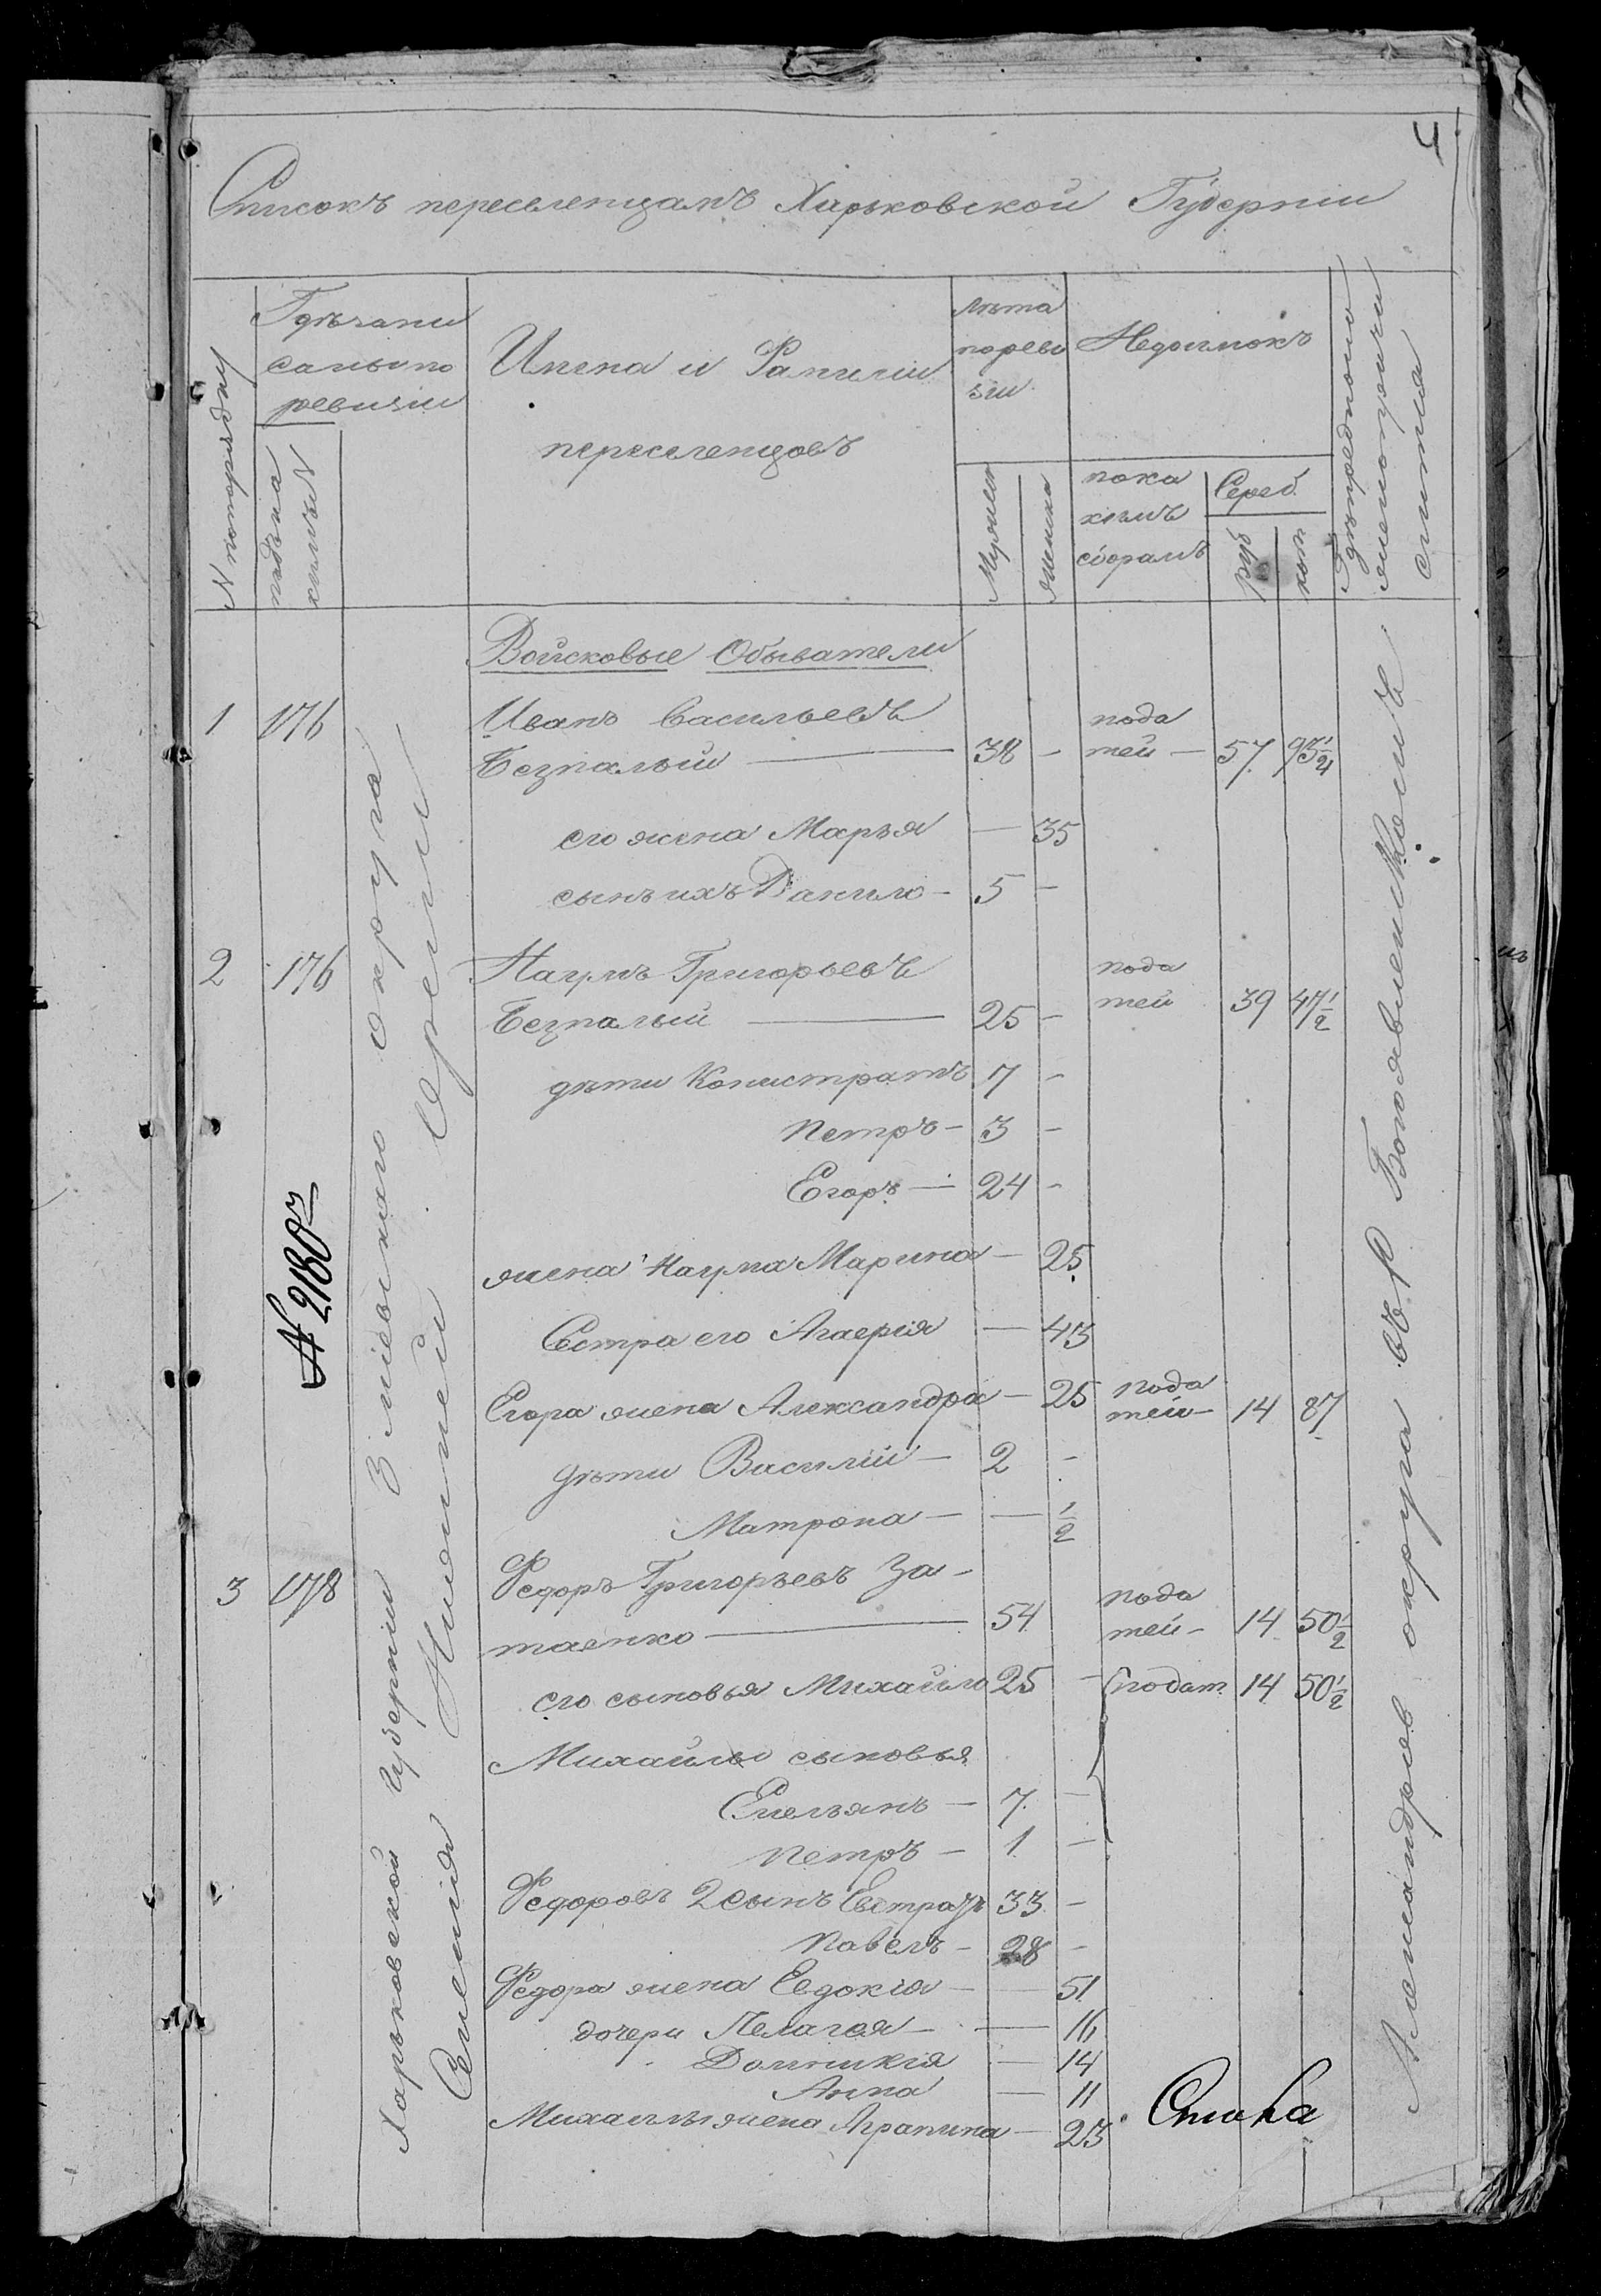 4
Списокъ переселенцамъ Харьковской Губерніи
N попорядку
Гдѣ запи
саны по
ревизіи
подъ на
кимъ N
Имена и Фамиліи
переселенцовъ
лѣта
по реви
зіи
Мужеск
женска
Недоимокъ
пока
кимъ
сборамъ
Сереб.
руб
коп
Войсковые Обыватели
1 176 Иванъ Васильевъ
Безпалый — 38 - пода
тей — 57 93 1/4
его жена Марья — 35
сынъ ихъ Данило - 5 -
2 176 Наумъ Григорьевъ
Безпалый — 25 - пода
тей 39 47 1/2
дѣти Конистратъ 7 -
Петръ - 3 -
Егоръ — 24 -
жена Наума Марина — 25
Сестра его — 43
Егора жена Александра — 25 пода
тей - 14 87
дѣти Василій — 2 -
Матрона — — 1/2
3 178 Федоръ Григорьевъ За-
таенко — 54 пода
тей - 14 50 1/2
его сыновья Михайло 25 - подат. 14 50 1/2
Михайлы сыновья
Емельянъ — 7 -
Петръ — 1 -
Федоровъ 2 сынъ 33 -
Павелъ - 28 -
Федора жена Евдокія — 51
дочери Пелагея — 16
Домникія — 14
Анна — 11
Михайлы жена Аграпина — 23
N 2180
Харьковской Губерніи Зміевскаго округа
Селенія Нижней
Александров округа въ Богоявленском